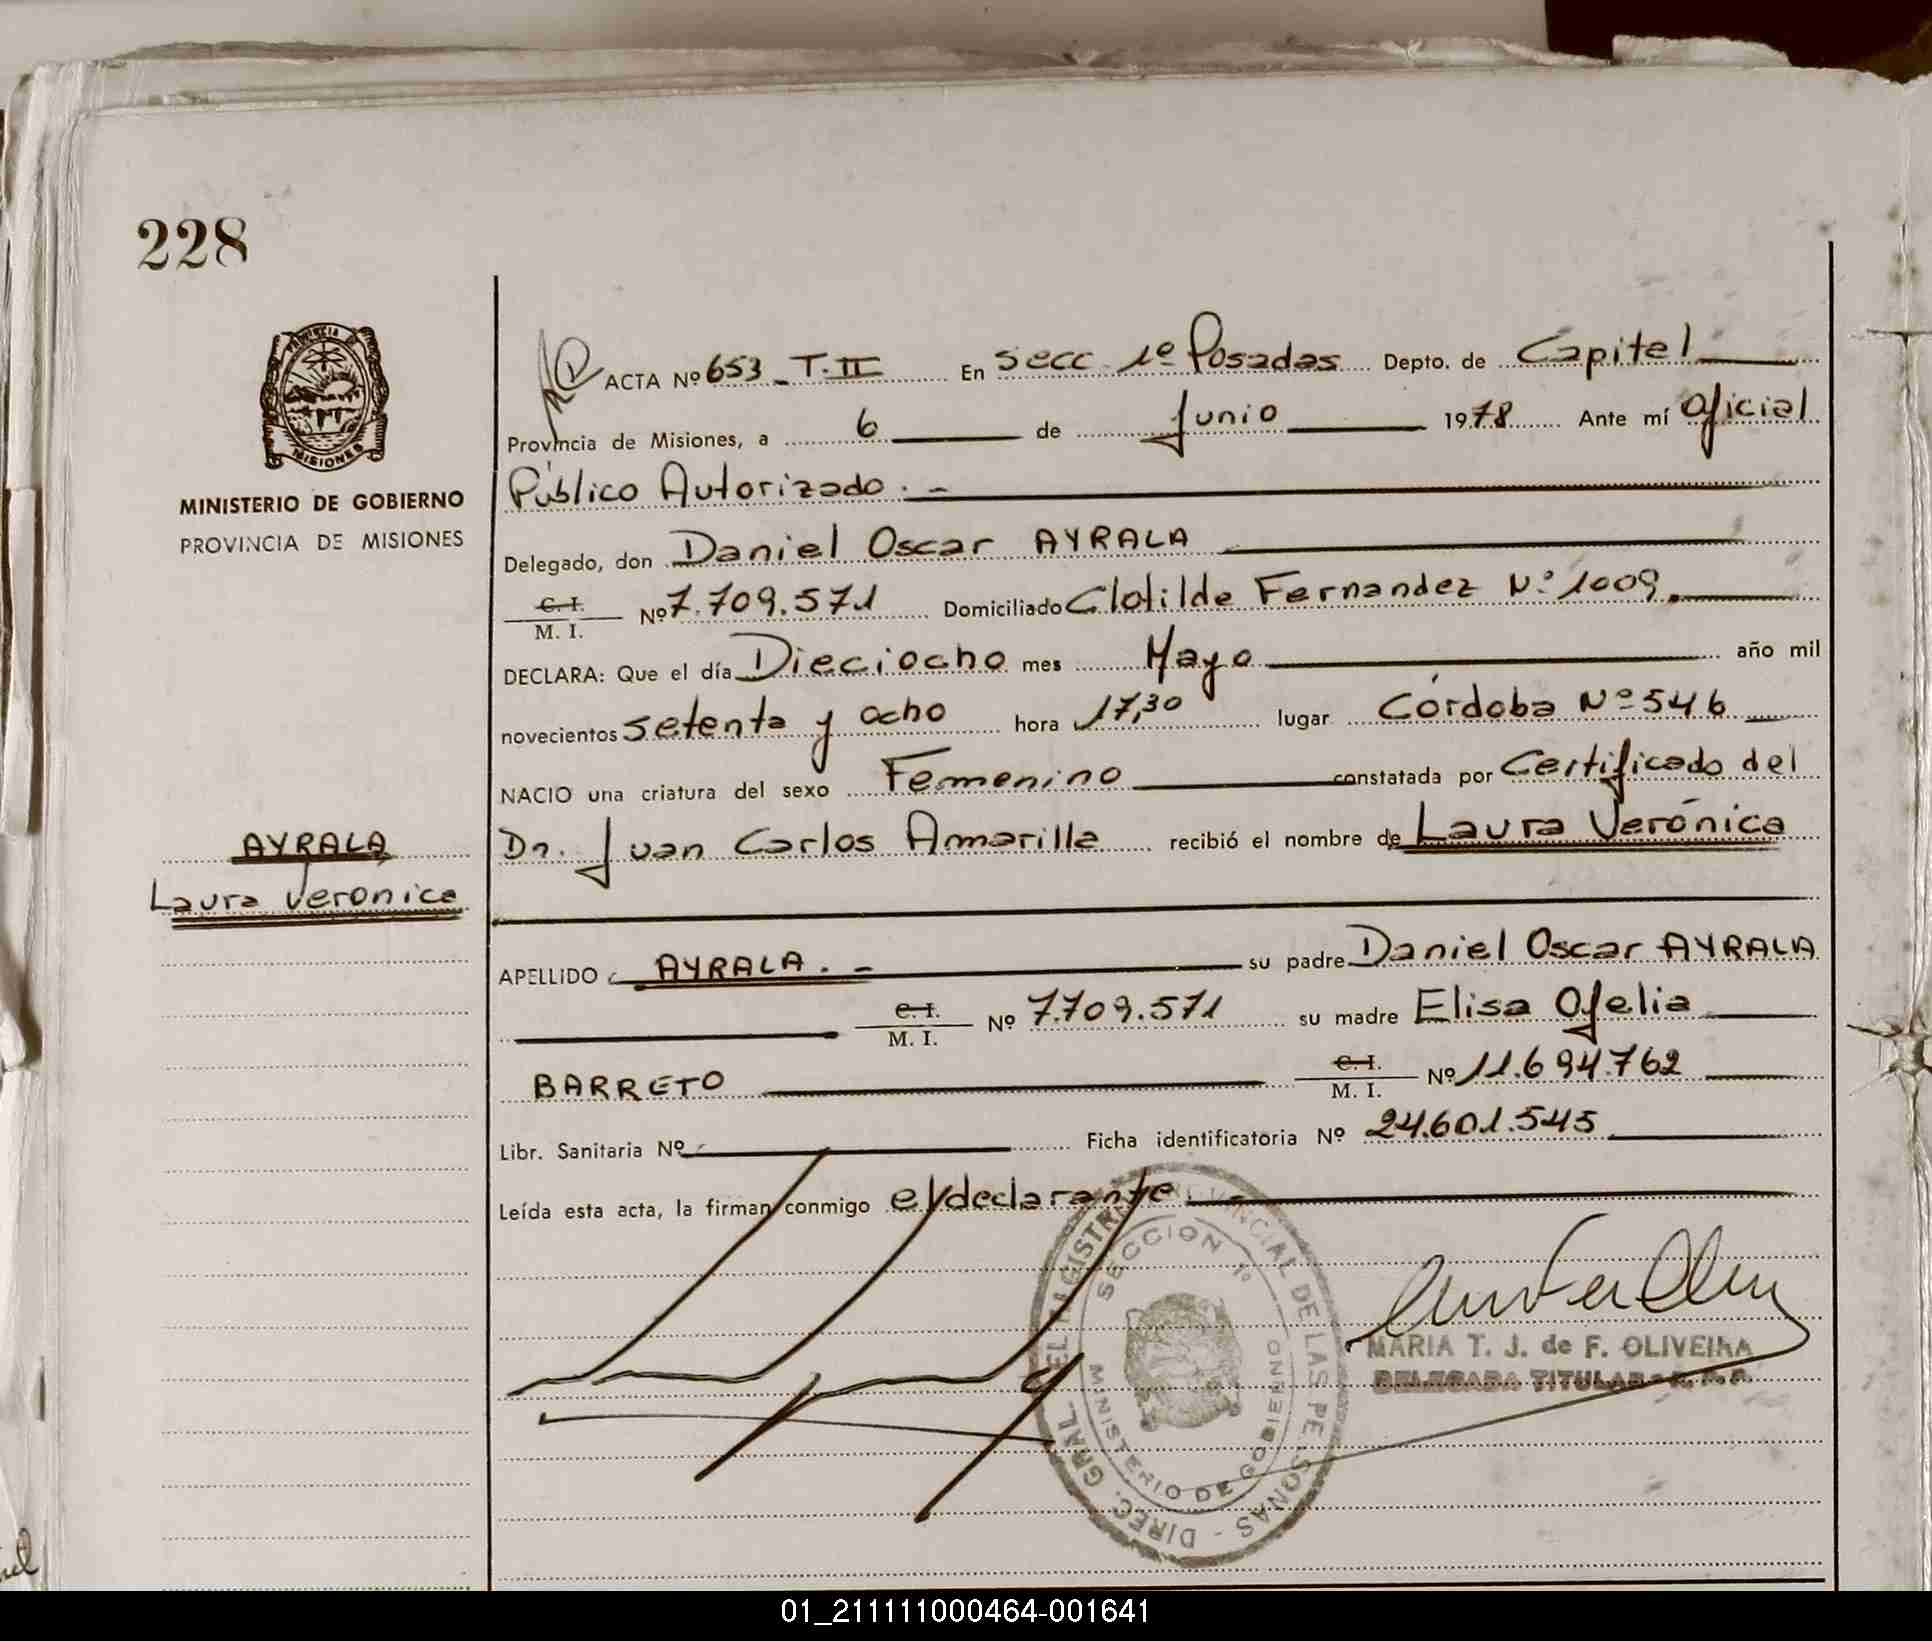 228
PROVINCIA DE
MISIONES
MINISTERIO DE GOBIERNO
PROVINCIA DE MISIONES
ACTA Nº 653 _ T. II En secc 1º Posadas Depto. de Capital
Provincia de Misiones, a 6 de Junio 1978 Ante mí Oficial
Público Autorizado. -
Delegado, don Daniel Oscar AYRALA
C. I.
M. I. Nº 7.709.571 Domiciliado Clotilde Fernandez Nº 1009.
DECLARA: Que el día Dieciocho mes Mayo año mil
novecientos setenta y ocho hora 17,30 lugar Córdoba Nº 546
NACIO una criatura del sexo Femenino constatada por Certificado del
Dr. Juan Carlos Amarilla recibió el nombre de Laura Verónica
AYRALA
Laura Veronica
APELLIDO AYRALA. - su padre Daniel Oscar AYRALA
C. I.
M. I. Nº 7.709.571 su madre Elisa Ofelia
BARRETO C. I.
M. I. Nº 11.694.762
Libr. Sanitaria Nº Ficha identificatoria Nº 24.601.545
Leída esta acta, la firman conmigo el declarante -
DIREC. GRAL. DEL REGISTRO PROVINCIAL DE LAS PERSONAS -
SECCION 1º
MINISTERIO DE GOBIERNO
MARIA T. J. de F. OLIVEIRA
DELEGADA TITULAR
01_211111000464-001641